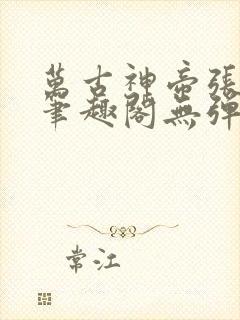 萬古神帝張
筆趣閣無彈
常江